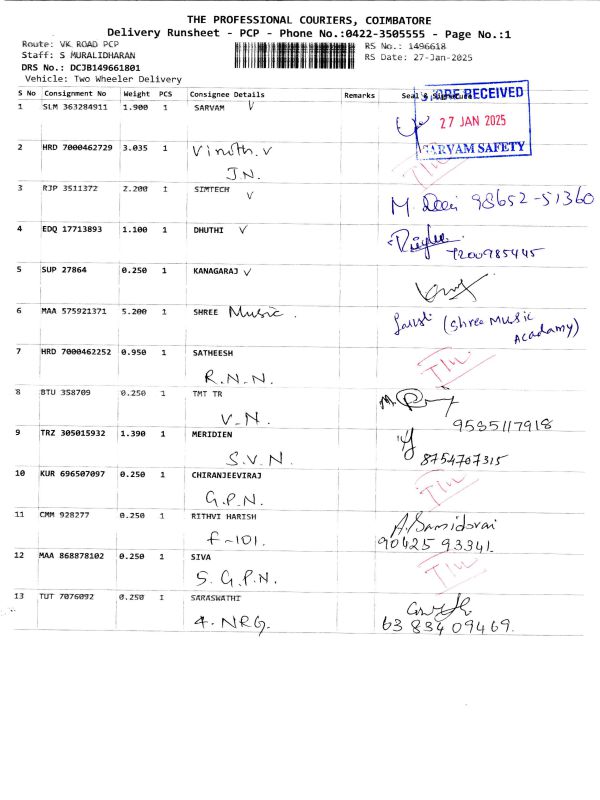 THE PROFESSIONAL COURIERS, COIMBATORE
Delivery Runsheet - PCP - Phone No.:0422-3505555 - Page No.:1
Route: VK ROAD PCP
RS No.: 1496618
Staff: S MURALIDHARAN
RS Date: 27-Jan-2025
DRS No.: DCJB149661801
Vehicle: Two Wheeler Delivery
S No Consignment No Weight PCS Consignee Details Remarks Seal &
STORE RECEIVED
27 JAN 2025
SARVAM SAFETY
1 SLM 363284911 1.900 1 SARVAM
2 HRD 7000462729 3.035 1 Vinoth.V
J.N.
3 RJP 3511372 2.200 1 SIMTECH
M. 98652-51360
4 EDQ 17713893 1.100 1 DHUTHI
7200985445
5 SUP 27864 0.250 1 KANAGARAJ
6 MAA 575921371 5.200 1 SHREE Music. (Shree Music Acadamy)
7 HRD 7000462252 0.950 1 SATHEESH
R.N.N.
8 BTU 358709 0.250 1 TMT TR
V.N. 9535117918
9 TRZ 305015932 1.390 1 MERIDIEN
S.V.N. 8754707315
10 KUR 696507097 0.250 1 CHIRANJEEVIRAJ
G.P.N.
11 CMM 928277 0.250 1 RITHVI HARISH A. Samidorai
F-101. 90425 93341.
12 MAA 868878102 0.250 1 SIVA
S.G.P.N.
13 TUT 7076092 0.250 1 SARASWATHI
4. NRG. 63 834 09469.